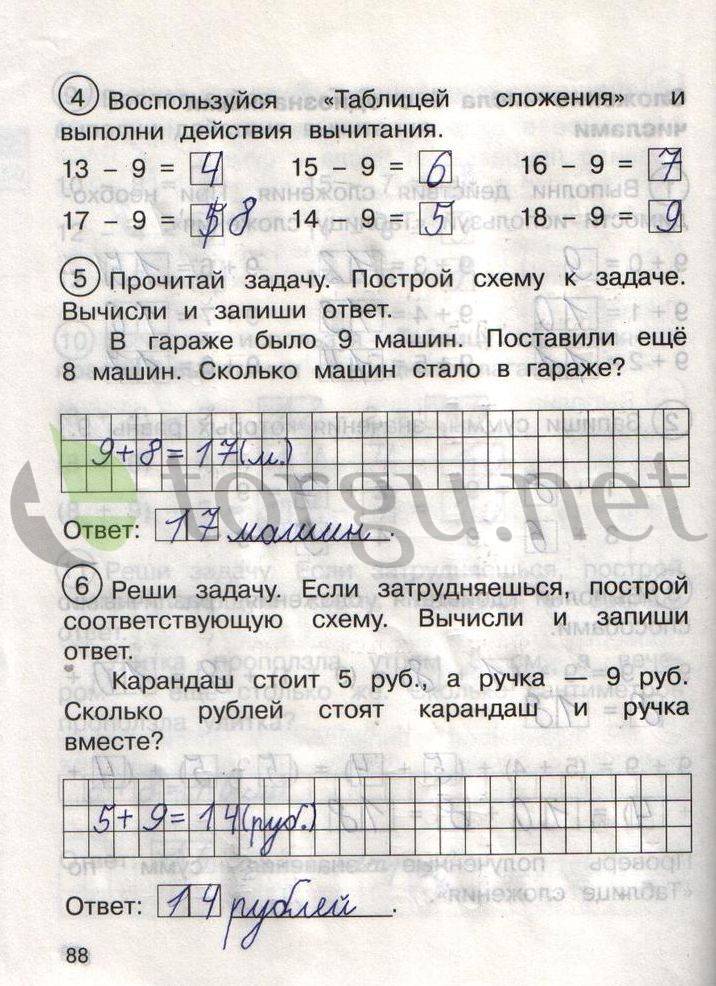 4 Воспользуйся «Таблицей сложения» и
выполни действия вычитания.
13 – 9 = 4 15 – 9 = 6 16 – 9 = 7
17 – 9 = 8 14 – 9 = 5 18 – 9 = 9
5 Прочитай задачу. Построй схему к задаче.
Вычисли и запиши ответ.
В гараже было 9 машин. Поставили ещё
8 машин. Сколько машин стало в гараже?
9+8=17(м.)
torgu.net
Ответ: 17 машин.
6 Реши задачу. Если затрудняешься, построй
соответствующую схему. Вычисли и запиши
ответ.
Карандаш стоит 5 руб., а ручка — 9 руб.
Сколько рублей стоят карандаш и ручка
вместе?
5+9=14(руб.)
Ответ: 14 рублей.
88